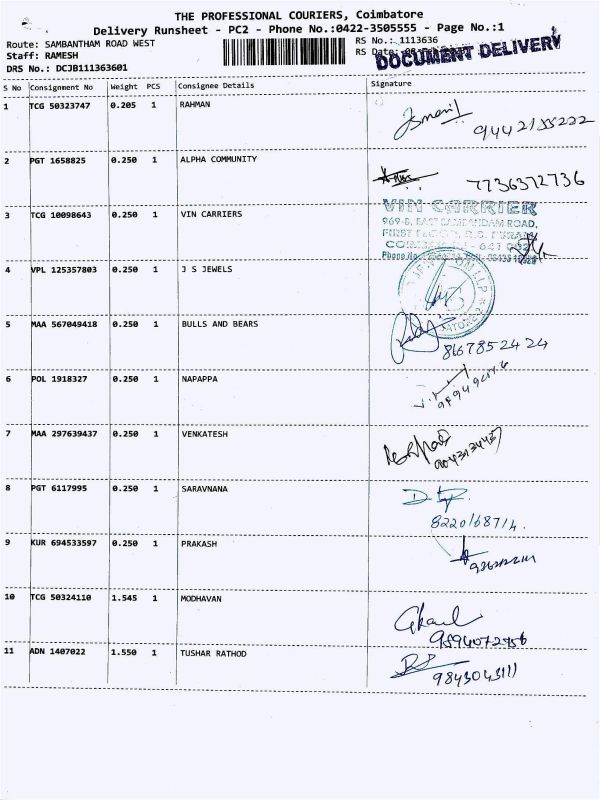 THE PROFESSIONAL COURIERS, Coimbatore
Delivery Runsheet - PC2 - Phone No.:0422-3505555 - Page No.:1
Route: SAMBANTHAM ROAD WEST
Staff: RAMESH
DRS No.: DCJB111363601
RS No.: 1113636
RS Date:
DOCUMENT DELIVERY
S No Consignment No Weight PCS Consignee Details Signature
1 TCG 50323747 0.205 1 RAHMAN
9442155222
2 PGT 1658825 0.250 1 ALPHA COMMUNITY
7736372736
3 TCG 10098643 0.250 1 VIN CARRIERS
VIN CARRIER
ROAD,
FIRST FLOOR, R.S. PURAM
Phone No
4 VPL 125357803 0.250 1 J S JEWELS
5 MAA 567049418 0.250 1 BULLS AND BEARS
8667852424
6 POL 1918327 0.250 1 NAPAPPA
7 MAA 297639437 0.250 1 VENKATESH
8 PGT 6117995 0.250 1 SARAVNANA
8220168714.
9 KUR 694533597 0.250 1 PRAKASH
10 TCG 50324110 1.545 1 MODHAVAN
11 ADN 1407022 1.550 1 TUSHAR RATHOD
9843043111